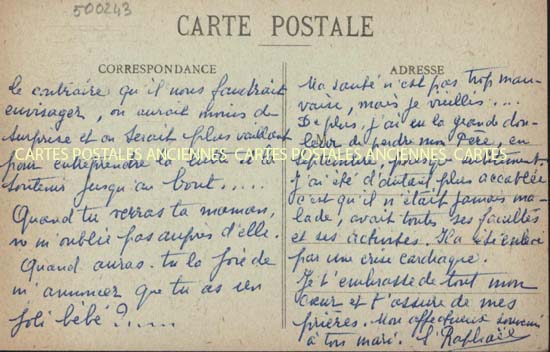 500243
CARTE POSTALE
CORRESPONDANCE
le contraire qu'il nous faudrait
envisager, on aurait moins de
surprise et on serait plus vaillant
pour entreprendre la et la
soutenir jusqu'au bout.....
Quand tu verras ta maman,
ne m'oublie pas auprès d'elle.
Quand auras-tu la joie de
m'annoncer que tu as un
joli bébé ?.....
ADRESSE
Ma santé n'est pas trop mau-
vaise, mais je vieillis....
De plus, j'ai eu la grande dou-
leur de perdre mon Père, en
J'ai été d'autant plus accablée
c'est qu'il n'était jamais ma-
lade, avait toutes ses facultés
et ses activités. Il a été enlevé
par une crise cardiaque.
Je t'embrasse de tout mon
cœur et t'assure de mes
prières. Mon affectueux souvenir
à ton mari. Sr Raphaël
CARTES POSTALES ANCIENNES CARTES POSTALES ANCIENNES CARTES